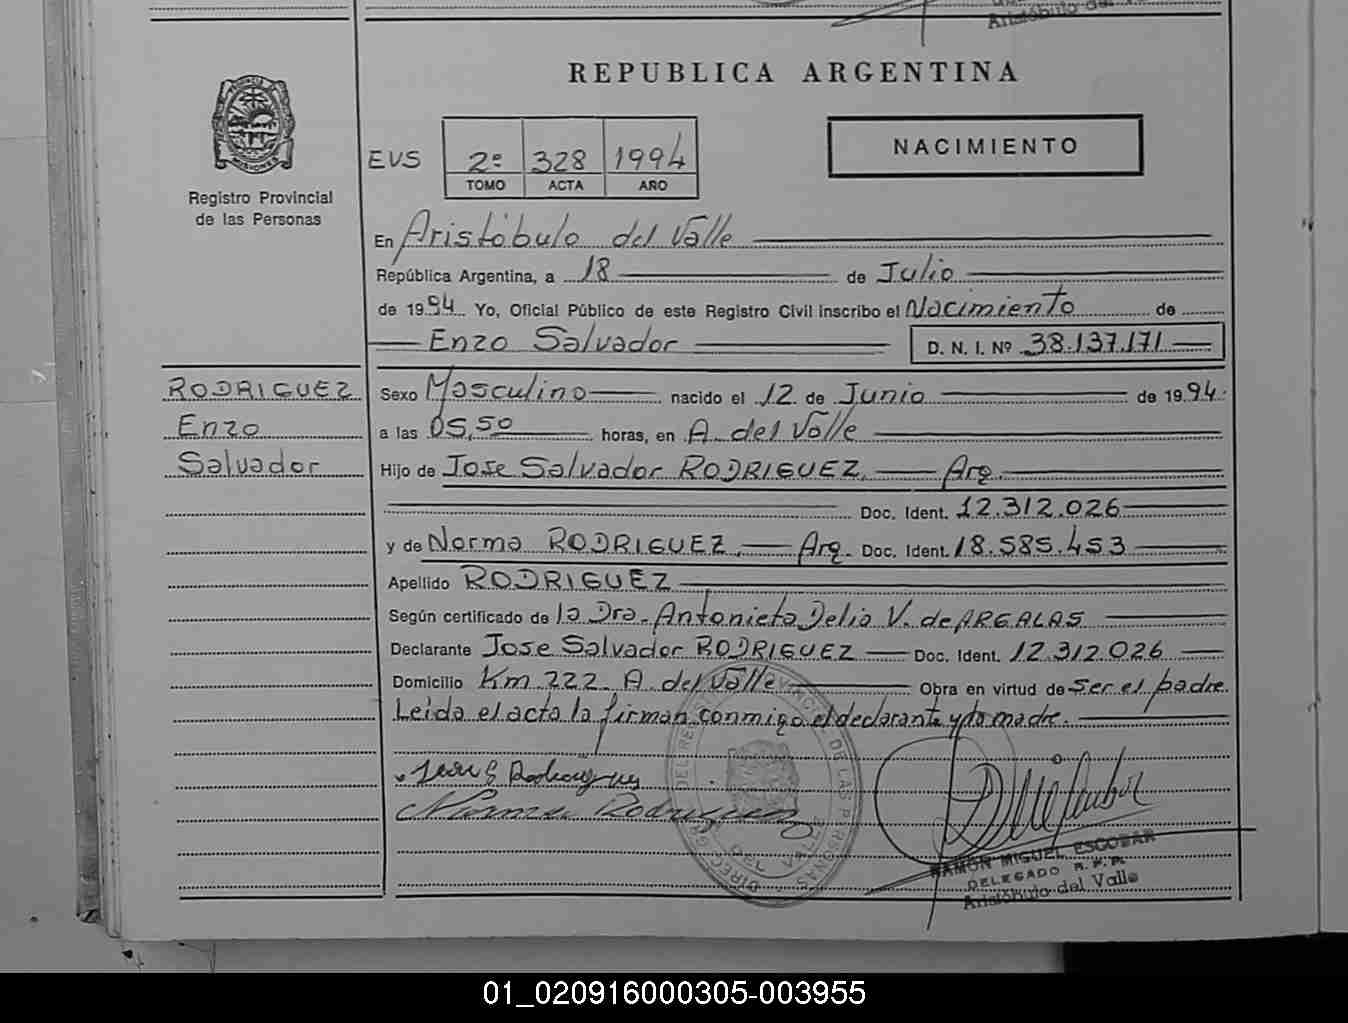 Aristóbulo del Valle
REPUBLICA ARGENTINA
Registro Provincial
de las Personas
EVS 2º 328 1994
TOMO ACTA AÑO
NACIMIENTO
En Aristóbulo del Valle
República Argentina, a 18 de Julio
de 1994. Yo, Oficial Público de este Registro Civil inscribo el Nacimiento de
Enzo Salvador D. N. I. Nº 38.137.171
RODRIGUEZ
Enzo
Salvador
Sexo Masculino nacido el 12 de Junio de 1994.
a las 05,50 horas, en A. del Valle
Hijo de Jose Salvador RODRIGUEZ, Arg.
Doc. Ident. 12.312.026
y de Norma RODRIGUEZ, Arg. Doc. Ident. 18.585.453
Apellido RODRIGUEZ
Según certificado de la Dra. Antonieta Delia V. de ARGALAS
Declarante Jose Salvador RODRIGUEZ Doc. Ident. 12.312.026
Domicilio Km 222 A. del Valle Obra en virtud de Ser el padre.
Leída el acta la firman conmigo el declarante y la madre.
Norma Rodriguez
RAMON MIGUEL ESCOBAR
DELEGADO R.P.P.
Aristóbulo del Valle
01_020916000305-003955